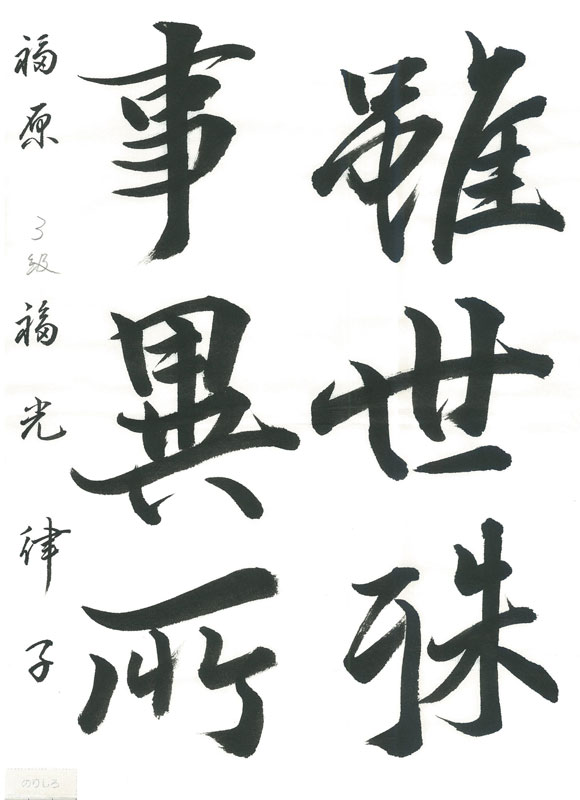 雖世殊
事異所
福原 3級 福光律子
のりしろ